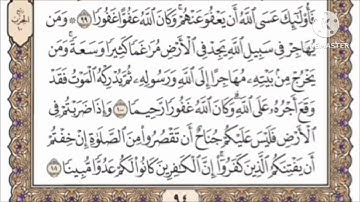 فَأُولَٰئِكَ عَسَى اللَّهُ أَن يَعْفُوَ عَنْهُمْ وَكَانَ اللَّهُ عَفُوًّا غَفُورًا ٩٩ وَمَن
يُهَاجِرْ فِي سَبِيلِ اللَّهِ يَجِدْ فِي الْأَرْضِ مُرَاغَمًا كَثِيرًا وَسَعَةً وَمَن
يَخْرُجْ مِن بَيْتِهِ مُهَاجِرًا إِلَى اللَّهِ وَرَسُولِهِ ثُمَّ يُدْرِكْهُ الْمَوْتُ فَقَدْ
وَقَعَ أَجْرُهُ عَلَى اللَّهِ وَكَانَ اللَّهُ غَفُورًا رَّحِيمًا ١٠٠ وَإِذَا ضَرَبْتُمْ فِي
الْأَرْضِ فَلَيْسَ عَلَيْكُمْ جُنَاحٌ أَن تَقْصُرُوا مِنَ الصَّلَاةِ إِنْ خِفْتُمْ
أَن يَفْتِنَكُمُ الَّذِينَ كَفَرُوا إِنَّ الْكَافِرِينَ كَانُوا لَكُمْ عَدُوًّا مُّبِينًا ١٠١
٩٤